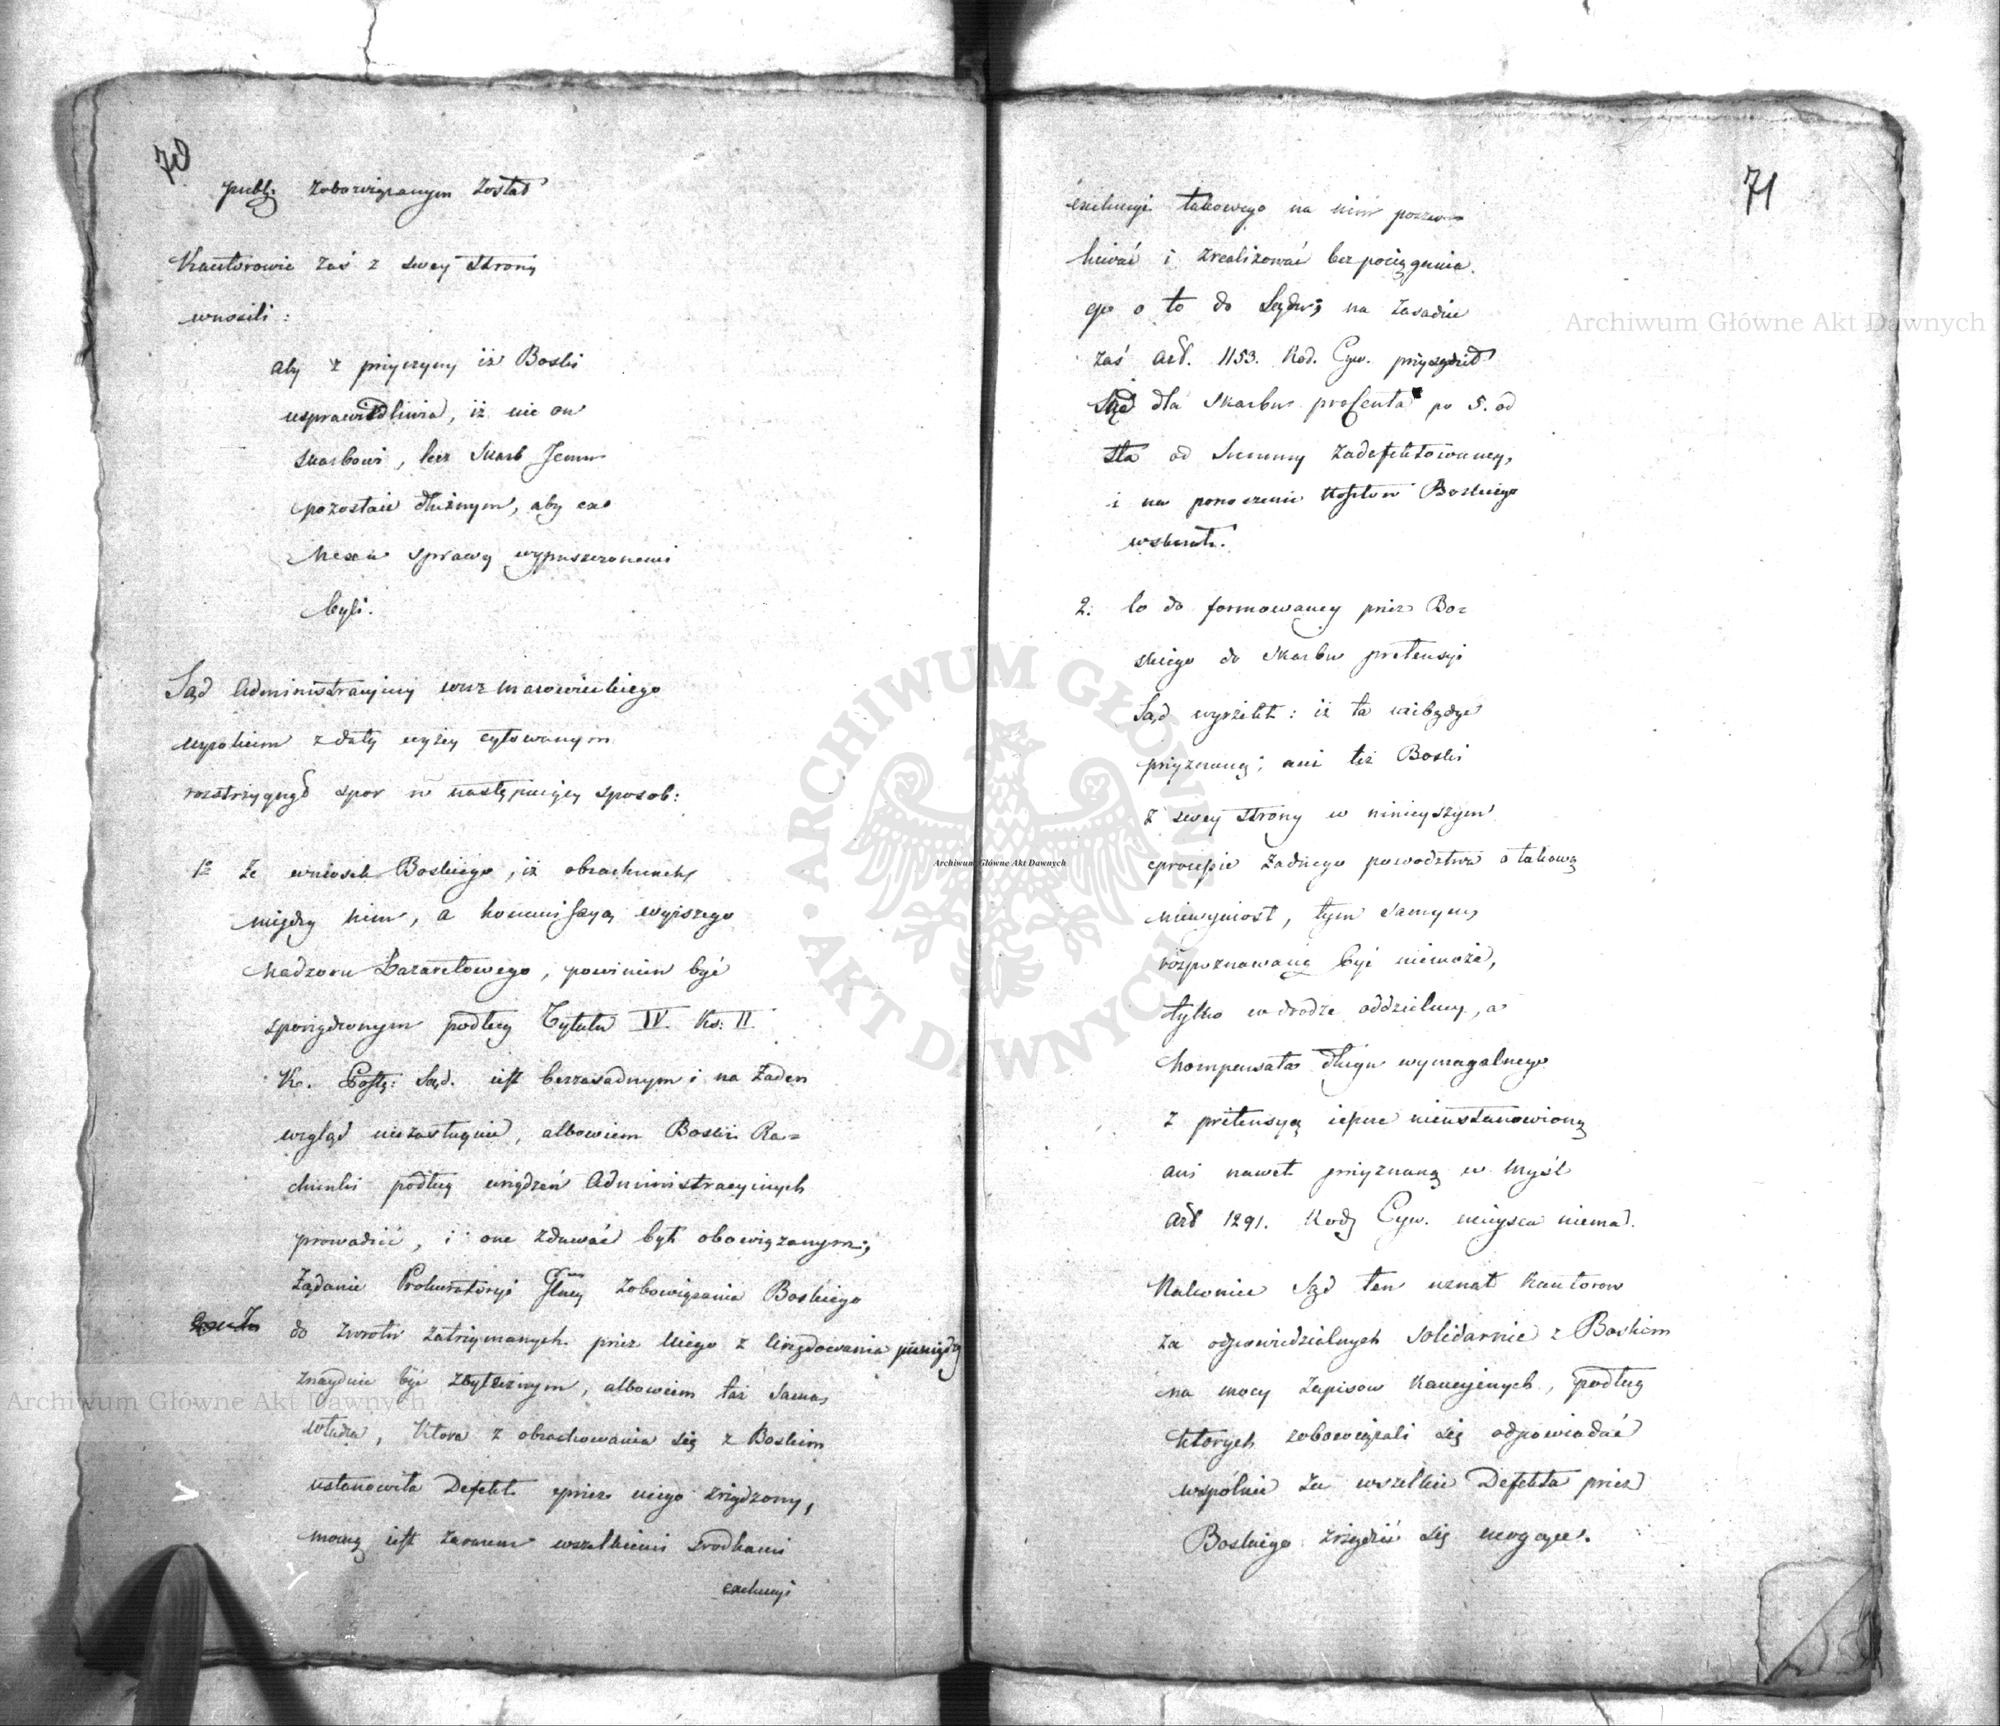 70
publ: zobowiązanym został
Kautorowie zaś z swey strony
wnosili:
aby z przyczyny iż Boski
usprawiedliwia, iż nie on
skarbowi, lecz Skarb Jemu
pozostaie dłużnym, aby cał
sprawą wypuszczonemi
byli.
Sąd Administracyjny wwz Mazowieckiego
wyrokiem z daty wyżey cytowanym
rozstrzygnął spor w następuiący sposob:
1o Że wniosek Boskiego, iż obrachunek
między nim, a kommissyą wyższego
Nadzoru Lazaretowego, powinien być
sporządzonym podług Tytułu IV. Ks: II.
Ko. Postę: Sąd. iest bezzasadnym i na żaden
wzgląd niezasługuie, albowiem Boski Ra=
chunki podług urządzeń Administracyinych
prowadzić, i one zdawać był obowiązanym;
Żądanie Prokuratoryi Głney zobowiązania Boskiego
do zwrotu zatrzymanych przez Niego z liwerowania pieniędzy
znayduie być zbytecznym, albowiem taż sama
władza, która z obrachowania się z Boskim
ustanowiła Defekt przez niego zrządzony,
mocną iest zarazem wszelkiemi srodkami
exekucyi
71
exekucyi takowego na nim poszu=
kiwać i zrealizować bez pociągania
go o to do Sądu; na zasadzie
zaś Art. 1153. Kod. Cyw. przysądził
Sąd dla Skarbu procenta po 5. od
sta od Summy zadefektowaney,
i na ponoszenie kosztow Boskiego
wskazał.
2. Co do formowaney przez Bo=
skiego do Skarbu pretensyi
Sąd wyrzekł: iż ta niebędąc
przyznaną; ani też Boski
z swey strony w ninieyszym
processie żadnego powodztwa o takową
niewyniost, tym samym
rozpoznawaną być niemoże,
tylko w drodze oddzielney, a
kompensata długu wymagalnego
z pretensyą ieszcze nieustanowioną
ani nawet przyznaną w myśl
Art 1291. Kod: Cyw. mieysca niema.
Nakoniec Sąd ten uznał Kautorow
za odpowiedzialnych solidarnie z Boskim
na mocy zapisow Kaucyinych, podług
ktorych zobowiązali się odpowiadać
wspolnie za wszelkie Defekta przez
Boskiego zrządzić się mogące.
Archiwum Główne Akt Dawnych
Archiwum Główne Akt Dawnych
Archiwum Główne Akt Dawnych
ARCHIWUM GŁÓWNE AKT DAWNYCH